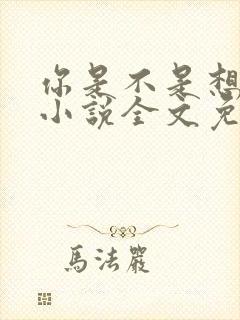 你是不是想
小说全文免
馬法嚴